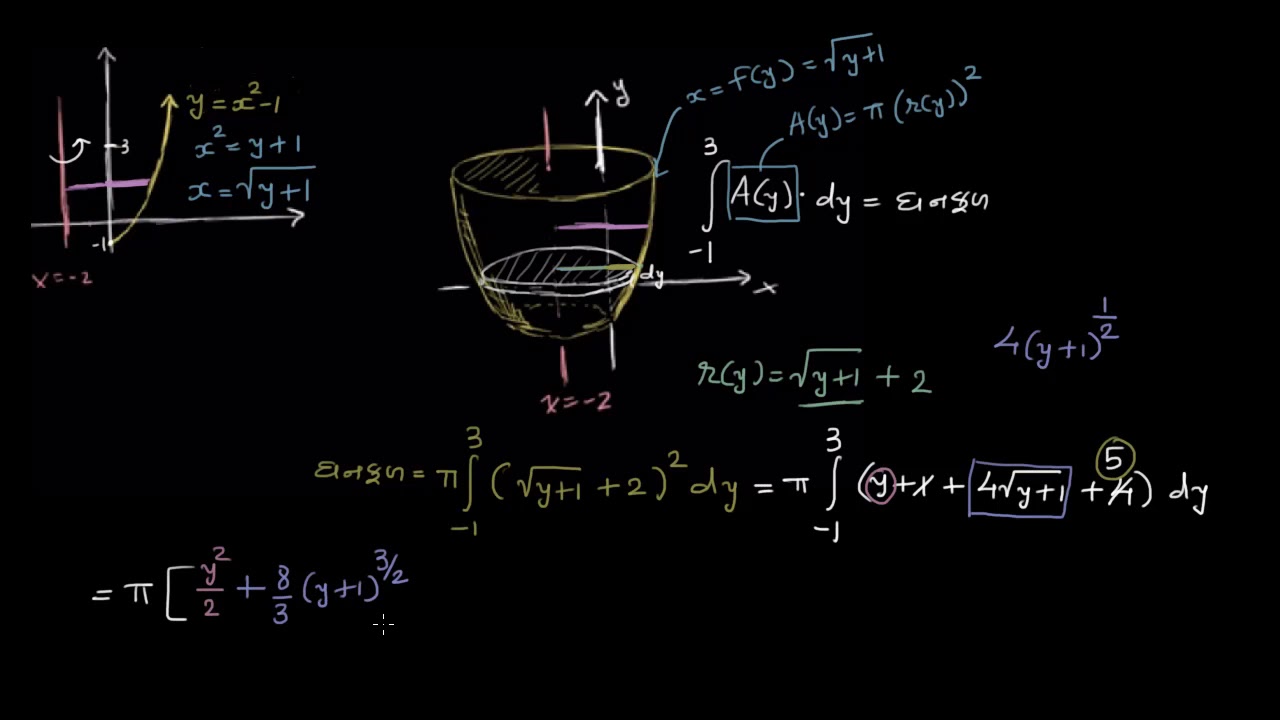 y = x² - 1
x² = y + 1
x = √(y+1)
3
-1
x = -2
y
x
dy
x = -2
x = f(y) = √(y+1)
A(y) = π (r(y))²
∫₋₁³ A(y) · dy = ઘનફળ
r(y) = √(y+1) + 2
4(y+1)^(1/2)
ઘનફળ = π ∫₋₁³ (√(y+1) + 2)² dy = π ∫₋₁³ (y + 1 + 4√(y+1) + 4) dy
5
= π [ y²/2 + 8/3 (y+1)^(3/2)